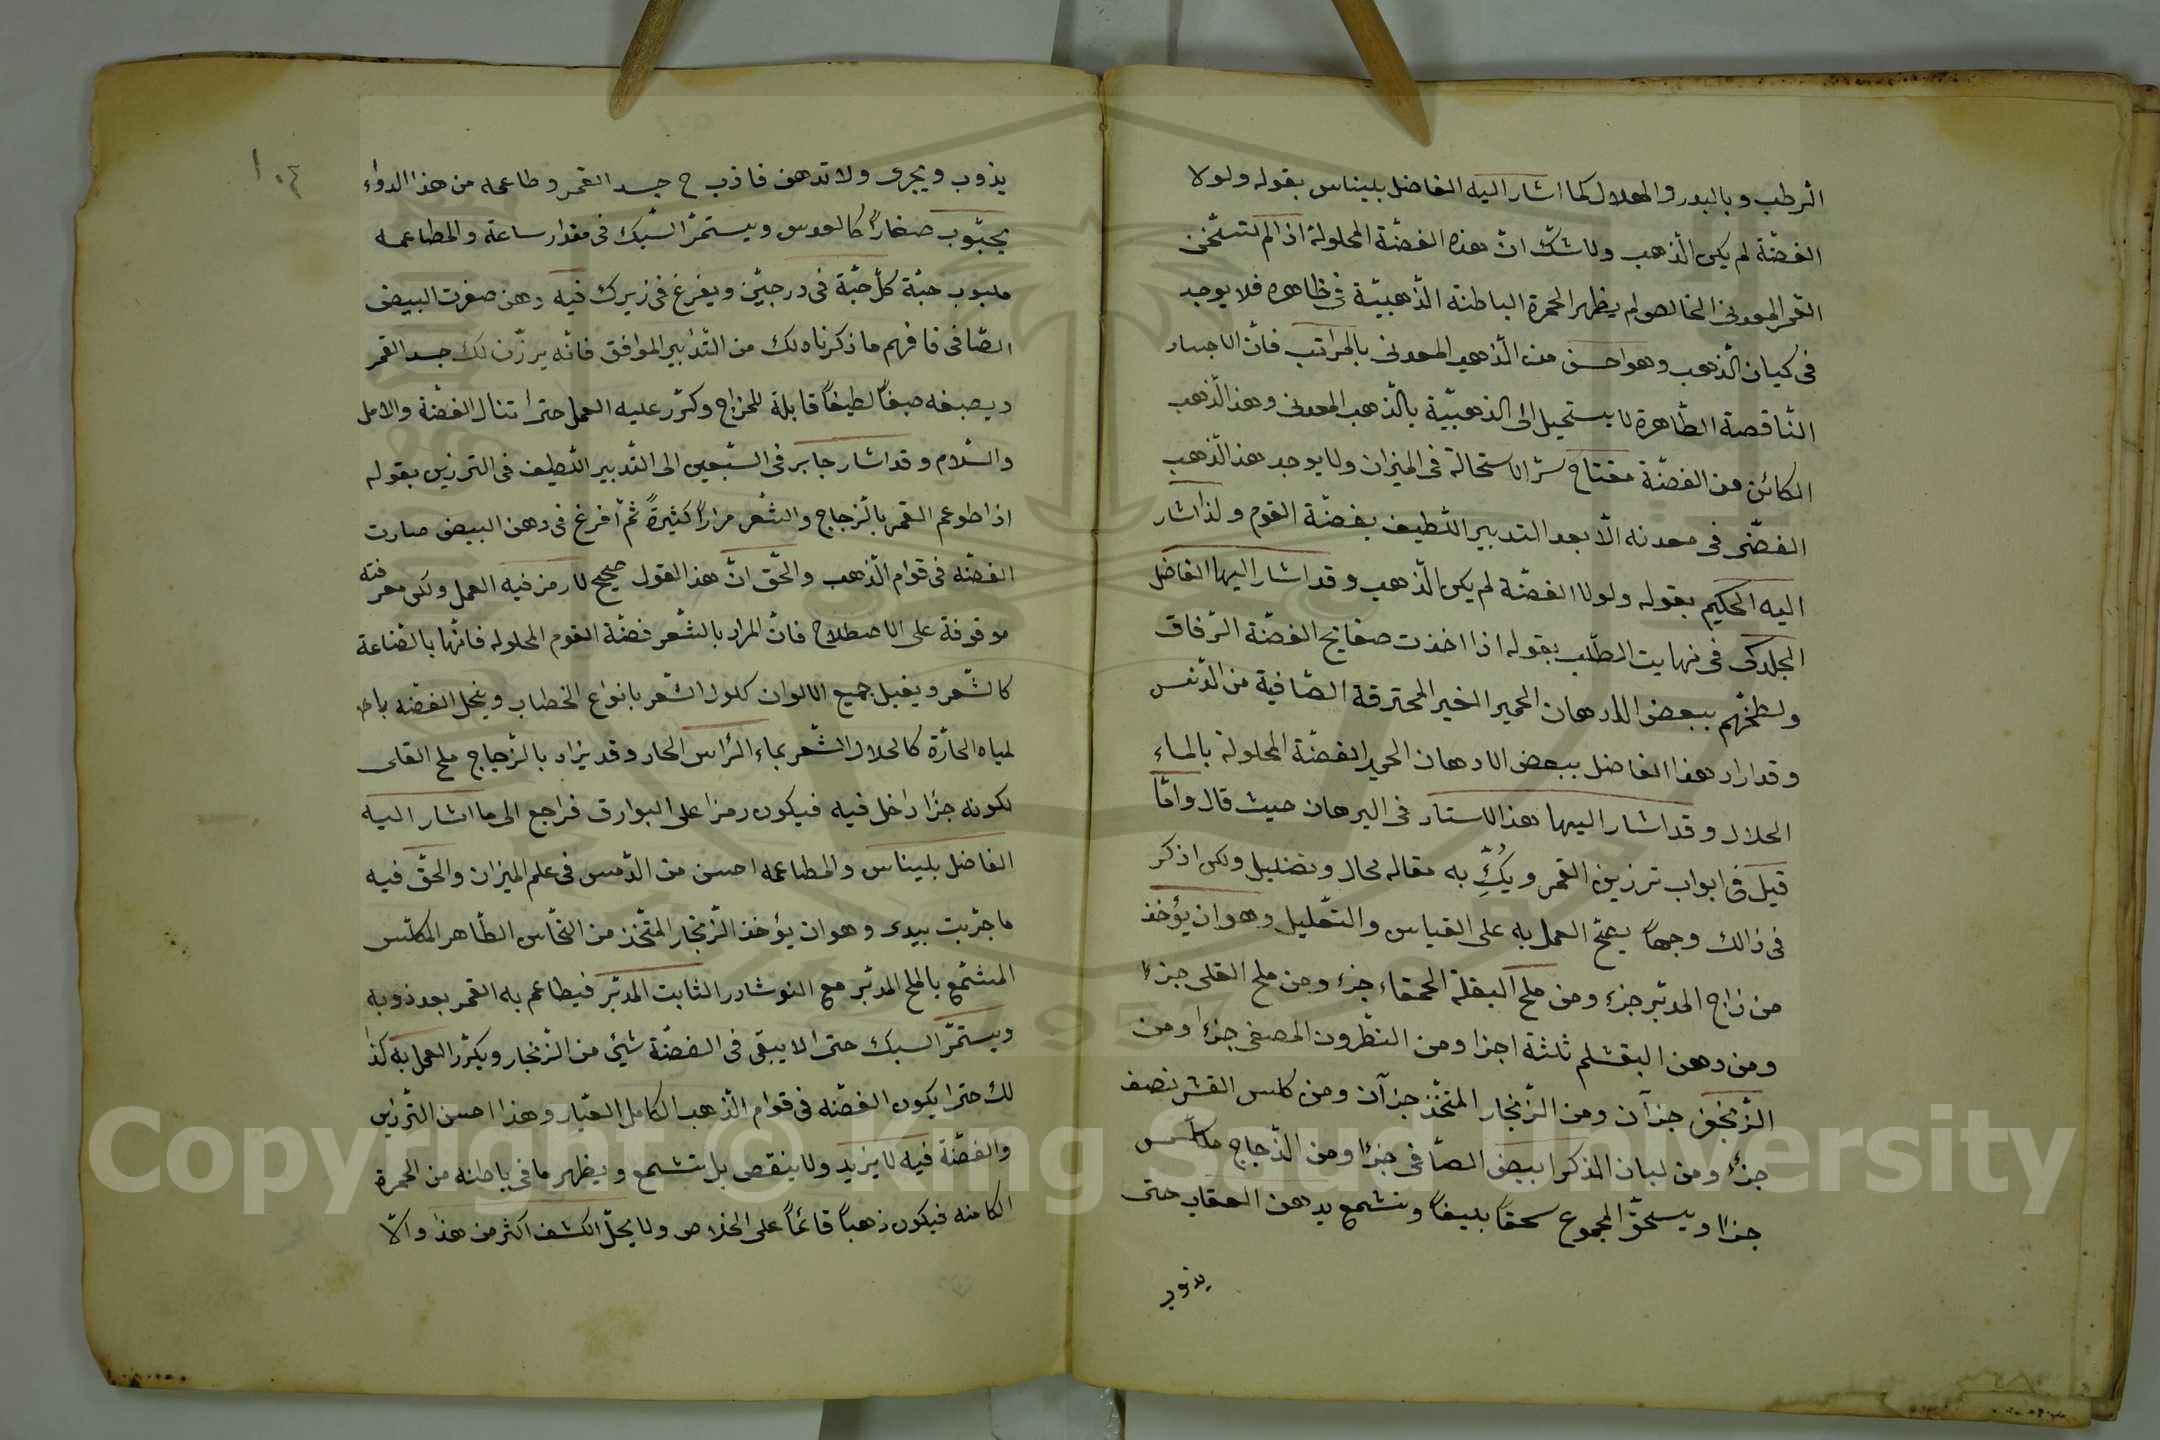 الرطب وبالبدر والهلال كما اشار اليه الفاضل بليناس بقوله ولولا
الفضّة لم يكن الذهب ولا شكّ انّ هذه الفضّة المحلولة اذا لم تسخن
القمر المعدني الخالص ولم يظهر الحمرة الباطنة الذّهبيّة في ظاهره فلا يوجد
في كيان الذهب وهو احسن من الذّهب المعدني بالمراتب فانّ الاجساد
النّاقصة الطّاهرة لا يستحيل الى الذهبيّة بالذّهب المعدني وهذا الذّهب
الكائن من الفضّة مفتاح سرّ الاستحالة في الميزان ولا يوجد هذا الذّهب
الفضّي في معدنه الّا بعد التدبير اللّطيف بفضّة القوم ولذا اشار
اليه الحكيم بقوله ولولا الفضّة لم يكن الذّهب وقد اشار اليها الفاضل
الجلدكي في نهايت الطّلب بقوله اذا اخذت صفايح الفضّة الرّقاق
ولطختهم ببعض الادهان الحمير الغير المحترقة الصّافية من الدّنس
وقد اراد هذا الفاضل ببعض الادهان الحمير الفضّة المحلولة بالماء
الحلال وقد اشار اليها هذا الاستاد في البرهان حيث قال وامّا
قيل في ابواب ترزين القمر ويكّ به مقاله محال وتضليل ولكن اذكر
في ذالك وجهاً يصحّ العمل به على القياس والتّعليل وهو ان يؤخذ
من زاج المدبّر جزء ومن ملح البقلة الحمقاء جزء ومن ملح القلى جزءا
ومن دهن البقشلم ثلثة اجزا ومن النّطرون المصفى جزءا ومن
الزّنجفر جزآن ومن الزّنجار المتّخذ جزآن ومن كلس القشر نصف
جزء ومن لبان الذكر ابيض الصّافي جزءا ومن الزّجاج مكلّس
جزءا ويسحق المجموع سحقاً بليغاً وتشمع بدهن العقاب حتى
يذوب
١٠٤
يذوب ويجرى ولا تدهن فاذب ح جسد القمر وطاعمه من هذا الدواء
بحبّوب صغاراً كالعدس ويستمرّ السّبك في مقدار ساعة والمطاعمه
حبّة كلّ حبّة في درجتين ويفرغ في زيرك فيه دهن صفرت البيض
الصّافي فافهم ما ذكرناه لك من التّدابير الموافق فانّه يرزّن لك جسد القمر
ويصبغه صبغاً لطيفاً قابلة للمزاج وكرّر عليه العمل حترا تنال الفضّة والامل
والسّلام وقد اشار جابر في السّبعين الى التّدبير اللّطيف في الترزين بقوله
اذا طوعم القمر بالزّجاج والشّعر مراراً كثيرةً ثمّ افرغ في دهن البيض صارت
الفضّه في قوام الذّهب والحقّ انّ هذا القول صحيح لا رمز فيه العمل ولكن معرفته
موقوفة على الاصطلاح فانّ المراد بالشّعر فضّة القوم المحلوله فانّها بالصّناعة
كالشّعر ويقبل جميع الالوان كلون الشّعر بانواع الخضاب وينحل الفضّه باحد
لمياه الحارّة كالحلال الشّعر بماء الرّاس الحار وقد يزاد بالزّجاج ملح القلى
لكونه جزا داخل فيه فيكون رمزا على البوارق فراجع الى ما اشار اليه
الفاضل بليناس والمطاعمه احسن من الدّمس في علم الميزان والحقّ فيه
ما جرّبت بيدى وهو ان يؤخذ الزّنجار المتّخذ من النّحاس الطّاهر المكلّس
المشمّع بالملح المدبّر مع النوشادر الثابت المدبّر فيطاعم به القمر بعد ذوبه
ويستمرّ السبك حترا لا يبقى في الفضّة شئ من الزّنجار ويكرّر العمل به كذا
لك حترا يكون الفضّه في قوام الذّهب الكامل العيّار وهذا احسن التّرازين
والفضّة فيه لا يزيد ولا ينقص بل تشمع ويظهر ما في باطنه من الحمرة
الكامنه فيكون ذهباً قائماً على الخلاص ولا يحلّ الكشف اكثر من هذا والّا
Copyright © King Saud University
1957